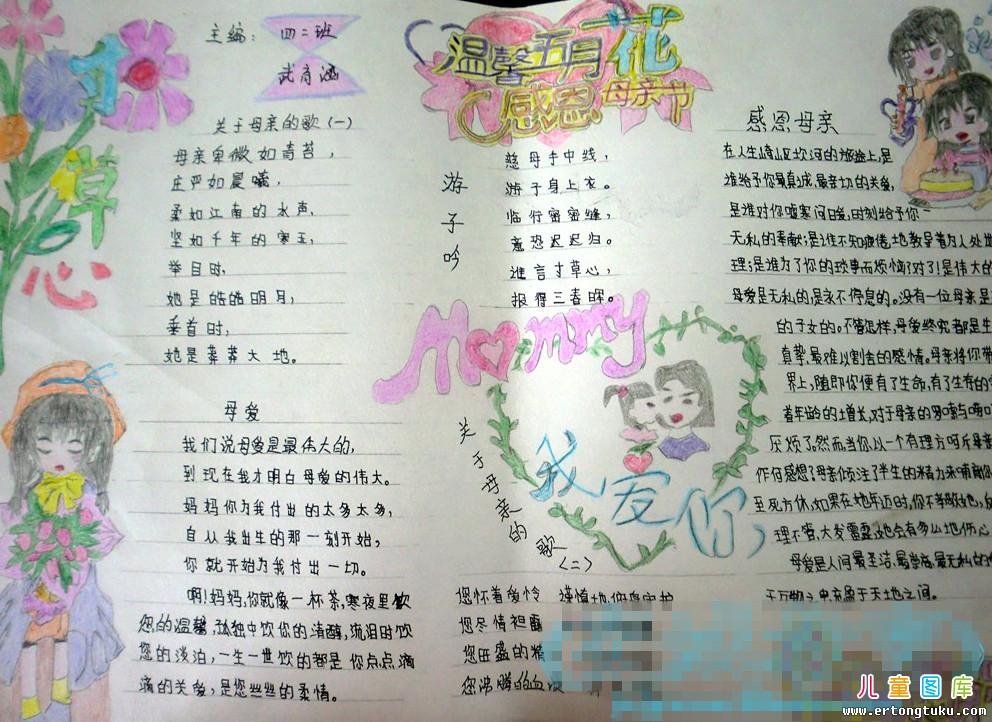 主编：四二班
武
寸草心
关于母亲的歌(一)
母亲卑微如青苔，
庄严如晨曦，
柔如江南的水声，
坚如千年的寒玉，
举目时，
她是皓皓明月，
垂首时，
她是莽莽大地。
母爱
我们说母爱是最伟大的，
到现在我才明白母爱的伟大。
妈妈你为我付出的太多太多，
自从我出生的那一刻开始，
你就开始为我付出一切。
啊！妈妈，你就像一杯茶，寒夜里饮
您的温馨，孤独中饮你的清醇，流泪时饮
您的淡泊，一生一世饮的都是你点点滴
滴的关爱，是您丝丝的柔情。
温馨五月花
感恩母亲节
游子吟
慈母手中线，
游子身上衣。
临行密密缝，
意恐迟迟归。
谁言寸草心，
报得三春晖。
Mommy
我爱你
关于母亲的歌(二)
您怀着爱怜
您尽情袒露
您旺盛的精
您沸腾的血液
感恩母亲
在人生崎山区坎河的旅途上，是
谁给予你最真诚、最亲切的关爱，
是谁对你嘘寒问暖，时刻给予你一
无私的奉献；是谁不知疲倦地教导着为人处世
理；是谁为了你的琐事而烦恼？对了！是伟大的
母爱是无私的，是永不停息的。没有一位母亲是
的子女的。不管怎样，母爱终究都是
真挚、最难以割舍的感情。母亲将你带
界上，随即你便有了生命，有了生存的
着年龄的增长，对于母亲的
厌烦了。然而当你以一个有理方呵斥母亲
作何感想？母亲倾注了半生的精力来哺育你
至死方休，如果在她年迈时，你不孝敬她，反
理不管，大发雷霆，她会有多么地伤心
母爱是人间最圣洁、最崇高、最无私的
于万物之中，充盈于天地之间。
儿童图库
www.ertongtuku.com